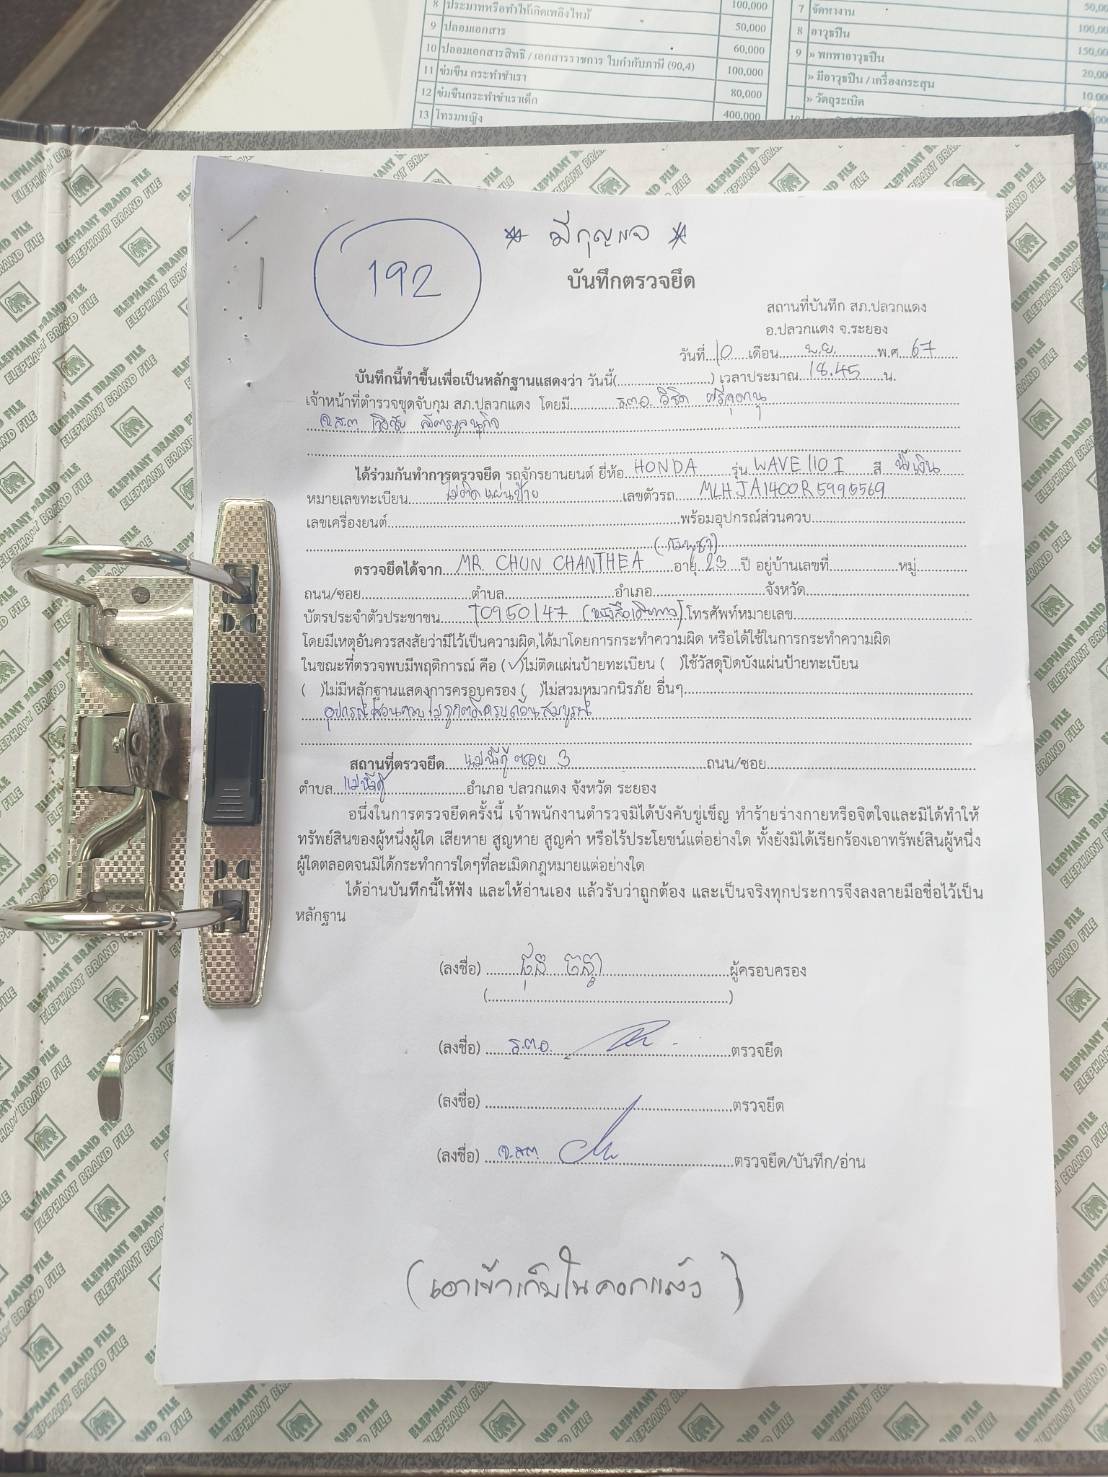 8 ประมาทหรือทำให้เกิดเพลิงไหม้ 100,000
9 ปลอมเอกสาร 50,000
10 ปลอมเอกสารสิทธิ / เอกสารราชการ ใบกำกับภาษี (90,4) 60,000
11 ข่มขืน กระทำชำเรา 100,000
12 ข่มขืนกระทำชำเราเด็ก 80,000
13 โทรมหญิง 400,000
7 จัดหางาน
8 อาวุธปืน
9 » พกพาอาวุธปืน
» มีอาวุธปืน / เครื่องกระสุน
» วัตถุระเบิด
ELEPHANT BRAND FILE
192
* มีกุญแจ *
บันทึกตรวจยึด
สถานที่บันทึก สภ.ปลวกแดง
อ.ปลวกแดง จ.ระยอง
วันที่ 10 เดือน พ.ย. พ.ศ. 67
บันทึกนี้ทำขึ้นเพื่อเป็นหลักฐานแสดงว่า วันนี้(..............) เวลาประมาณ 18.45 น.
เจ้าหน้าที่ตำรวจชุดจับกุม สภ.ปลวกแดง โดยมี ร.ต.อ.
จ.ส.ต.
ได้ร่วมกันทำการตรวจยึด รถจักรยานยนต์ ยี่ห้อ HONDA รุ่น WAVE 110 I สี น้ำเงิน
หมายเลขทะเบียน ไม่ติดแผ่นป้าย เลขตัวรถ MLHJA1400R5995569
เลขเครื่องยนต์..............พร้อมอุปกรณ์ส่วนควบ..............
(กัมพูชา)
ตรวจยึดได้จาก MR. CHUN CHANTHEA อายุ 23 ปี อยู่บ้านเลขที่..............หมู่..............
ถนน/ซอย..............ตำบล..............อำเภอ..............จังหวัด..............
บัตรประจำตัวประชาชน T0950147 (หนังสือเดินทาง) โทรศัพท์หมายเลข..............
โดยมีเหตุอันควรสงสัยว่ามีไว้เป็นความผิด,ได้มาโดยการกระทำความผิด หรือได้ใช้ในการกระทำความผิด
ในขณะที่ตรวจพบมีพฤติการณ์ คือ (✓)ไม่ติดแผ่นป้ายทะเบียน ( )ใช้วัสดุปิดบังแผ่นป้ายทะเบียน
( )ไม่มีหลักฐานแสดงการครอบครอง ( )ไม่สวมหมวกนิรภัย อื่นๆ..............
อุปกรณ์ส่วนควบไม่ถูกต้องครบถ้วนสมบูรณ์
สถานที่ตรวจยึด แม่น้ำคู้ ซอย 3 ถนน/ซอย..............
ตำบล แม่น้ำคู้ อำเภอ ปลวกแดง จังหวัด ระยอง
อนึ่งในการตรวจยึดครั้งนี้ เจ้าพนักงานตำรวจมิได้บังคับขู่เข็ญ ทำร้ายร่างกายหรือจิตใจและมิได้ทำให้
ทรัพย์สินของผู้หนึ่งผู้ใด เสียหาย สูญหาย สูญค่า หรือไร้ประโยชน์แต่อย่างใด ทั้งยังมิได้เรียกร้องเอาทรัพย์สินผู้หนึ่ง
ผู้ใดตลอดจนมิได้กระทำการใดๆที่ละเมิดกฎหมายแต่อย่างใด
ได้อ่านบันทึกนี้ให้ฟัง และให้อ่านเอง แล้วรับว่าถูกต้อง และเป็นจริงทุกประการจึงลงลายมือชื่อไว้เป็น
หลักฐาน
(ลงชื่อ)..............ผู้ครอบครอง
(..............)
(ลงชื่อ) ร.ต.อ. ..............ตรวจยึด
(ลงชื่อ)..............ตรวจยึด
(ลงชื่อ) จ.ส.ต. ..............ตรวจยึด/บันทึก/อ่าน
(เอาเข้าเก็บในคอกแล้ว)